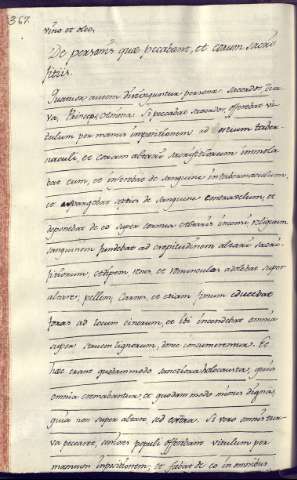 367.
vino et oleo,
De personis quæ peccabant, et eorum sacri-
ficiis.
Quatuor autem distinguuntur personæ. Sacerdos,
Princeps, Si peccabat sacerdos, offerebat vi-
tulum per manus impositionem ad ostium taber-
naculi, et coram altari sacrificiorum immola-
bat eum, et inferebat de sanguine in tabernaculum,
et aspargebat septies de sanguine contra velum, et
deponebat de eo super cornua altaris incensi, reliquum
sanguinem fundebat ad crepitudinem altaris sacri-
ficiorum, adipem renes et renunculos adolebat super
altare; pellem, carnes, et etiam fimum educebat
foras ad locum cinerum, et ibi incendebat omnia
super struem lignorum, donec consumerentur. Et
hæc erant quodammodo similia holocausto, quia
omnia cremabantur et quodam modo minus digna,
quia non super altare sed extra. Si vero omnis tur-
ba peccaret, seniores populi offerebant vitulum per
manuum impositionem, et fiebat de eo in omnibus